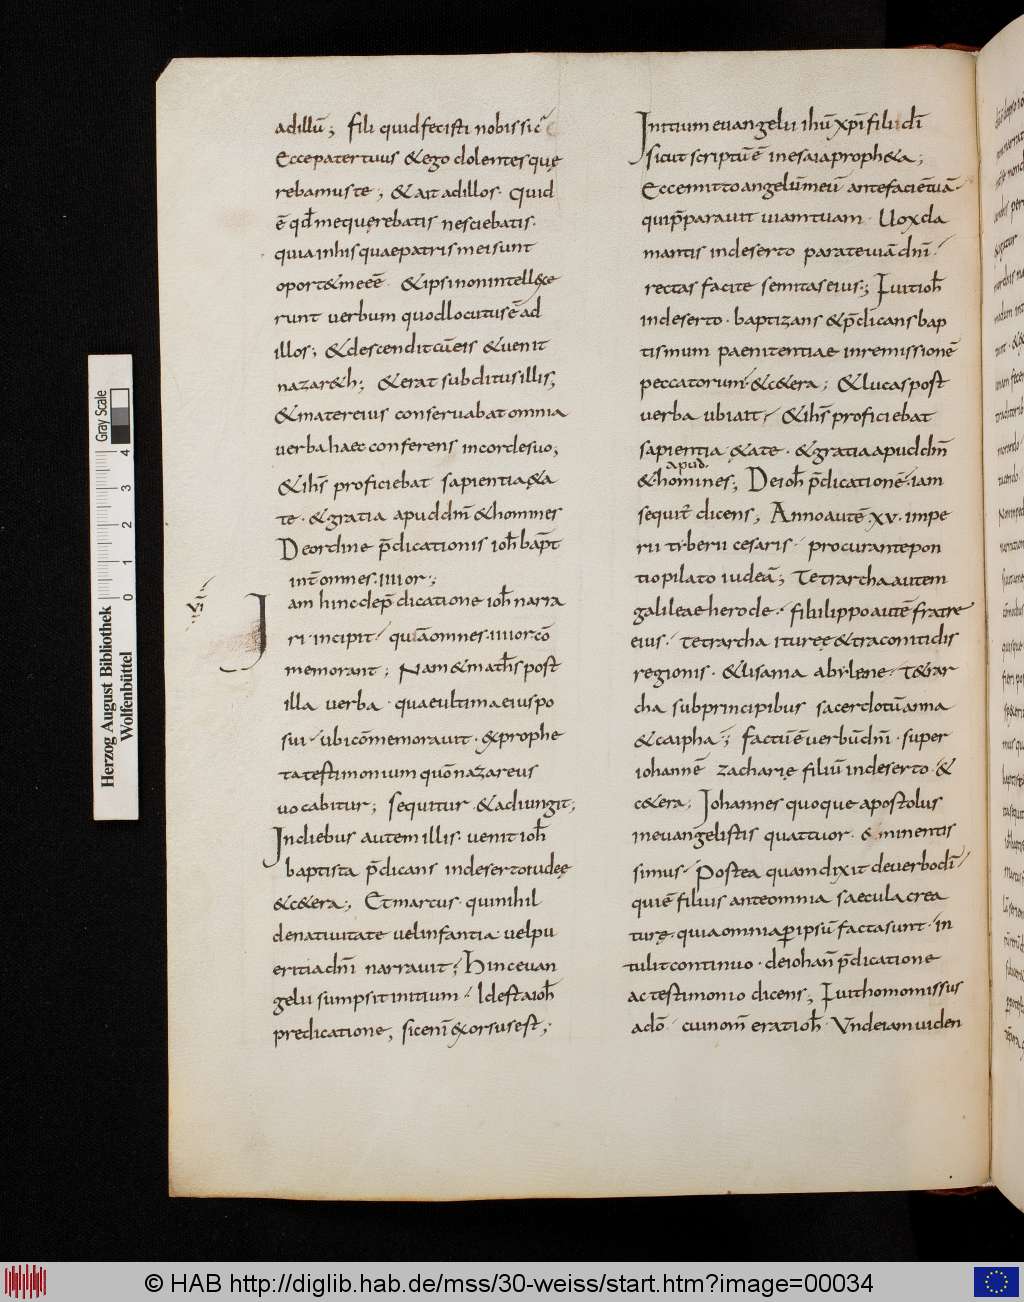 adillū; fili quid fecisti nobis sic
Ecce pater tuus & ego dolentes quę
rebamus te; & ait ad illos. Quid
ē qđ me quęrebatis nesciebatis.
quia inhis quae patris mei sunt
oport& me eē. & ipsi non intellexe
runt uerbum quod locutus ē ad
illos; & descendit cū eis & uenit
nazar&h; & erat subditus illis;
& mater eius conseruabat omnia
uerba haec conferens in corde suo;
& ihs̄ proficiebat sapientia & a
te. & gratia apud dm̄ & homines
De ordine p̄dicationis ioh̄ bapt̄
int̄ omnes. iiiior;
VI
Iam hinc de p̄dicatione ioh̄ narra
ri incipit. quā omnes. iiiior cō
memorant; Nam & math̄s post
illa uerba. quae ultima eius po
sui. ubi cōmemorauit. ex prophe
ta testimonium quōnazareus
uocabitur; sequitur. & adiungit;
In diebus autem illis. uenit ioh̄
baptista p̄dicans in deserto iudeę
& c&era; Et marcus. qui nihil
de natiuitate uel infantia uel pu
eritia dn̄i narrauit; Hinc euan
gelii sumpsit initium. Id est a ioh̄
predicatione, sic eni exorsus est;
Initium euangelii ihū xp̄i filii dī
sicut scriptū ē in esaia proph&a;
Ecce mitto angelū meū ante faciē tuā.
qui p̄parauit uiam tuam. Uox cla
mantis in deserto parate uiā dn̄i.
rectas facite semitas eius; Fuit ioh̄
in deserto. baptizans & p̄dicans bap
tismum paenitentiae in remissionē
peccatorum & c&era; & lucas post
uerba ubi ait. & ihs̄ proficiebat
sapientia & ate. & gratia apud dm̄
apud.
& homines; De ioh̄ p̄dicationē. iam
sequit̄ dicens, Anno autē xv. impe
rii tyberii cesaris. procurante pon
tio pilato iudeā; Tetrarcha autem
galileae herode. fihilippo autē fratre
eius. tetrarcha iturę & traconitidis
regionis. & lisania abylene. t&rar
cha sub principibus sacerdotū anna
& caipha; factū ē uerbū dn̄i. super
iohannē zacharię filiū in deserto. &
c&era; Iohannes quoque apostolus
in euangelistis quattuor. eminentis
simus. Postea quam dixit de uerbo dī.
qui ē filius ante omnia saecula crea
turę. quia omnia ꝑ ipsū facta sunt. in
tulit continuo. de iohan̄ p̄dicatione
ac testimonio dicens, Fuit homo missus
a dō. cui nom̄ erat ioh̄. Unde iam uiden
Herzog August Bibliothek
Wolfenbüttel
Gray Scale
0 1 2 3 4
© HAB http://diglib.hab.de/mss/30-weiss/start.htm?image=00034